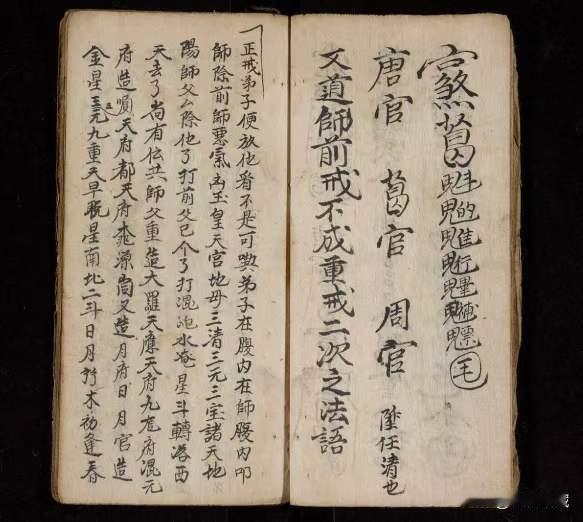 煞葛魁魓魒毛
唐官 葛官 周官 陞任清也
又道師前戒不成重戒二次之法語
一正戒弟子便放他看不是可與弟子在腹內在師腹內叩
師除前師惡氣凶玉皇天宮地母三清三元三宝諸天地
陽師父厶除他了打前父己个了打混沌水淹星斗轉落西
天去了尚有位共師父重造大羅天應天府九龙府混元
府造順天府都天府桃源洞又造月府日月宮造
金星元九重天早晚星南北二斗日月竹木初逢春